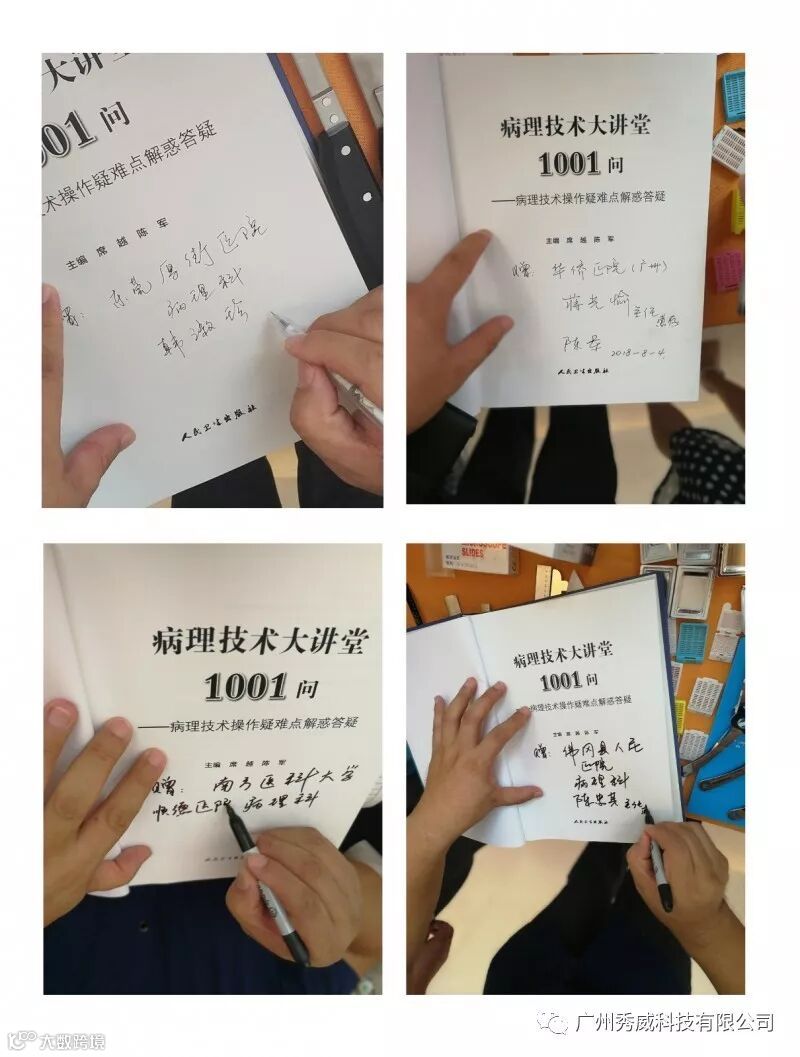 大讲堂
001 问
术操作疑难点解惑答疑
主编 席 越 陈 军
东莞厚街医院
病理科
韩
人民卫生出版社
病理技术大讲堂
1001 问
——病理技术操作疑难点解惑答疑
主编 席 越 陈 军
赠：华侨医院（广州）
蒋光愉 主任
陈军 2018-8-4
人民卫生出版社
病理技术大讲堂
1001 问
——病理技术操作疑难点解惑答疑
主编 席 越 陈 军
赠：南方医科大学
顺德医院 病理科
人民卫生出版社
SLIDES
病理技术大讲堂
1001 问
病理技术操作疑难点解惑答疑
主编 席 越 陈 军
赠：佛冈县人民
医院
病理科
陈忠其 主任
人民卫生出版社
广州秀威科技有限公司
大数跨境